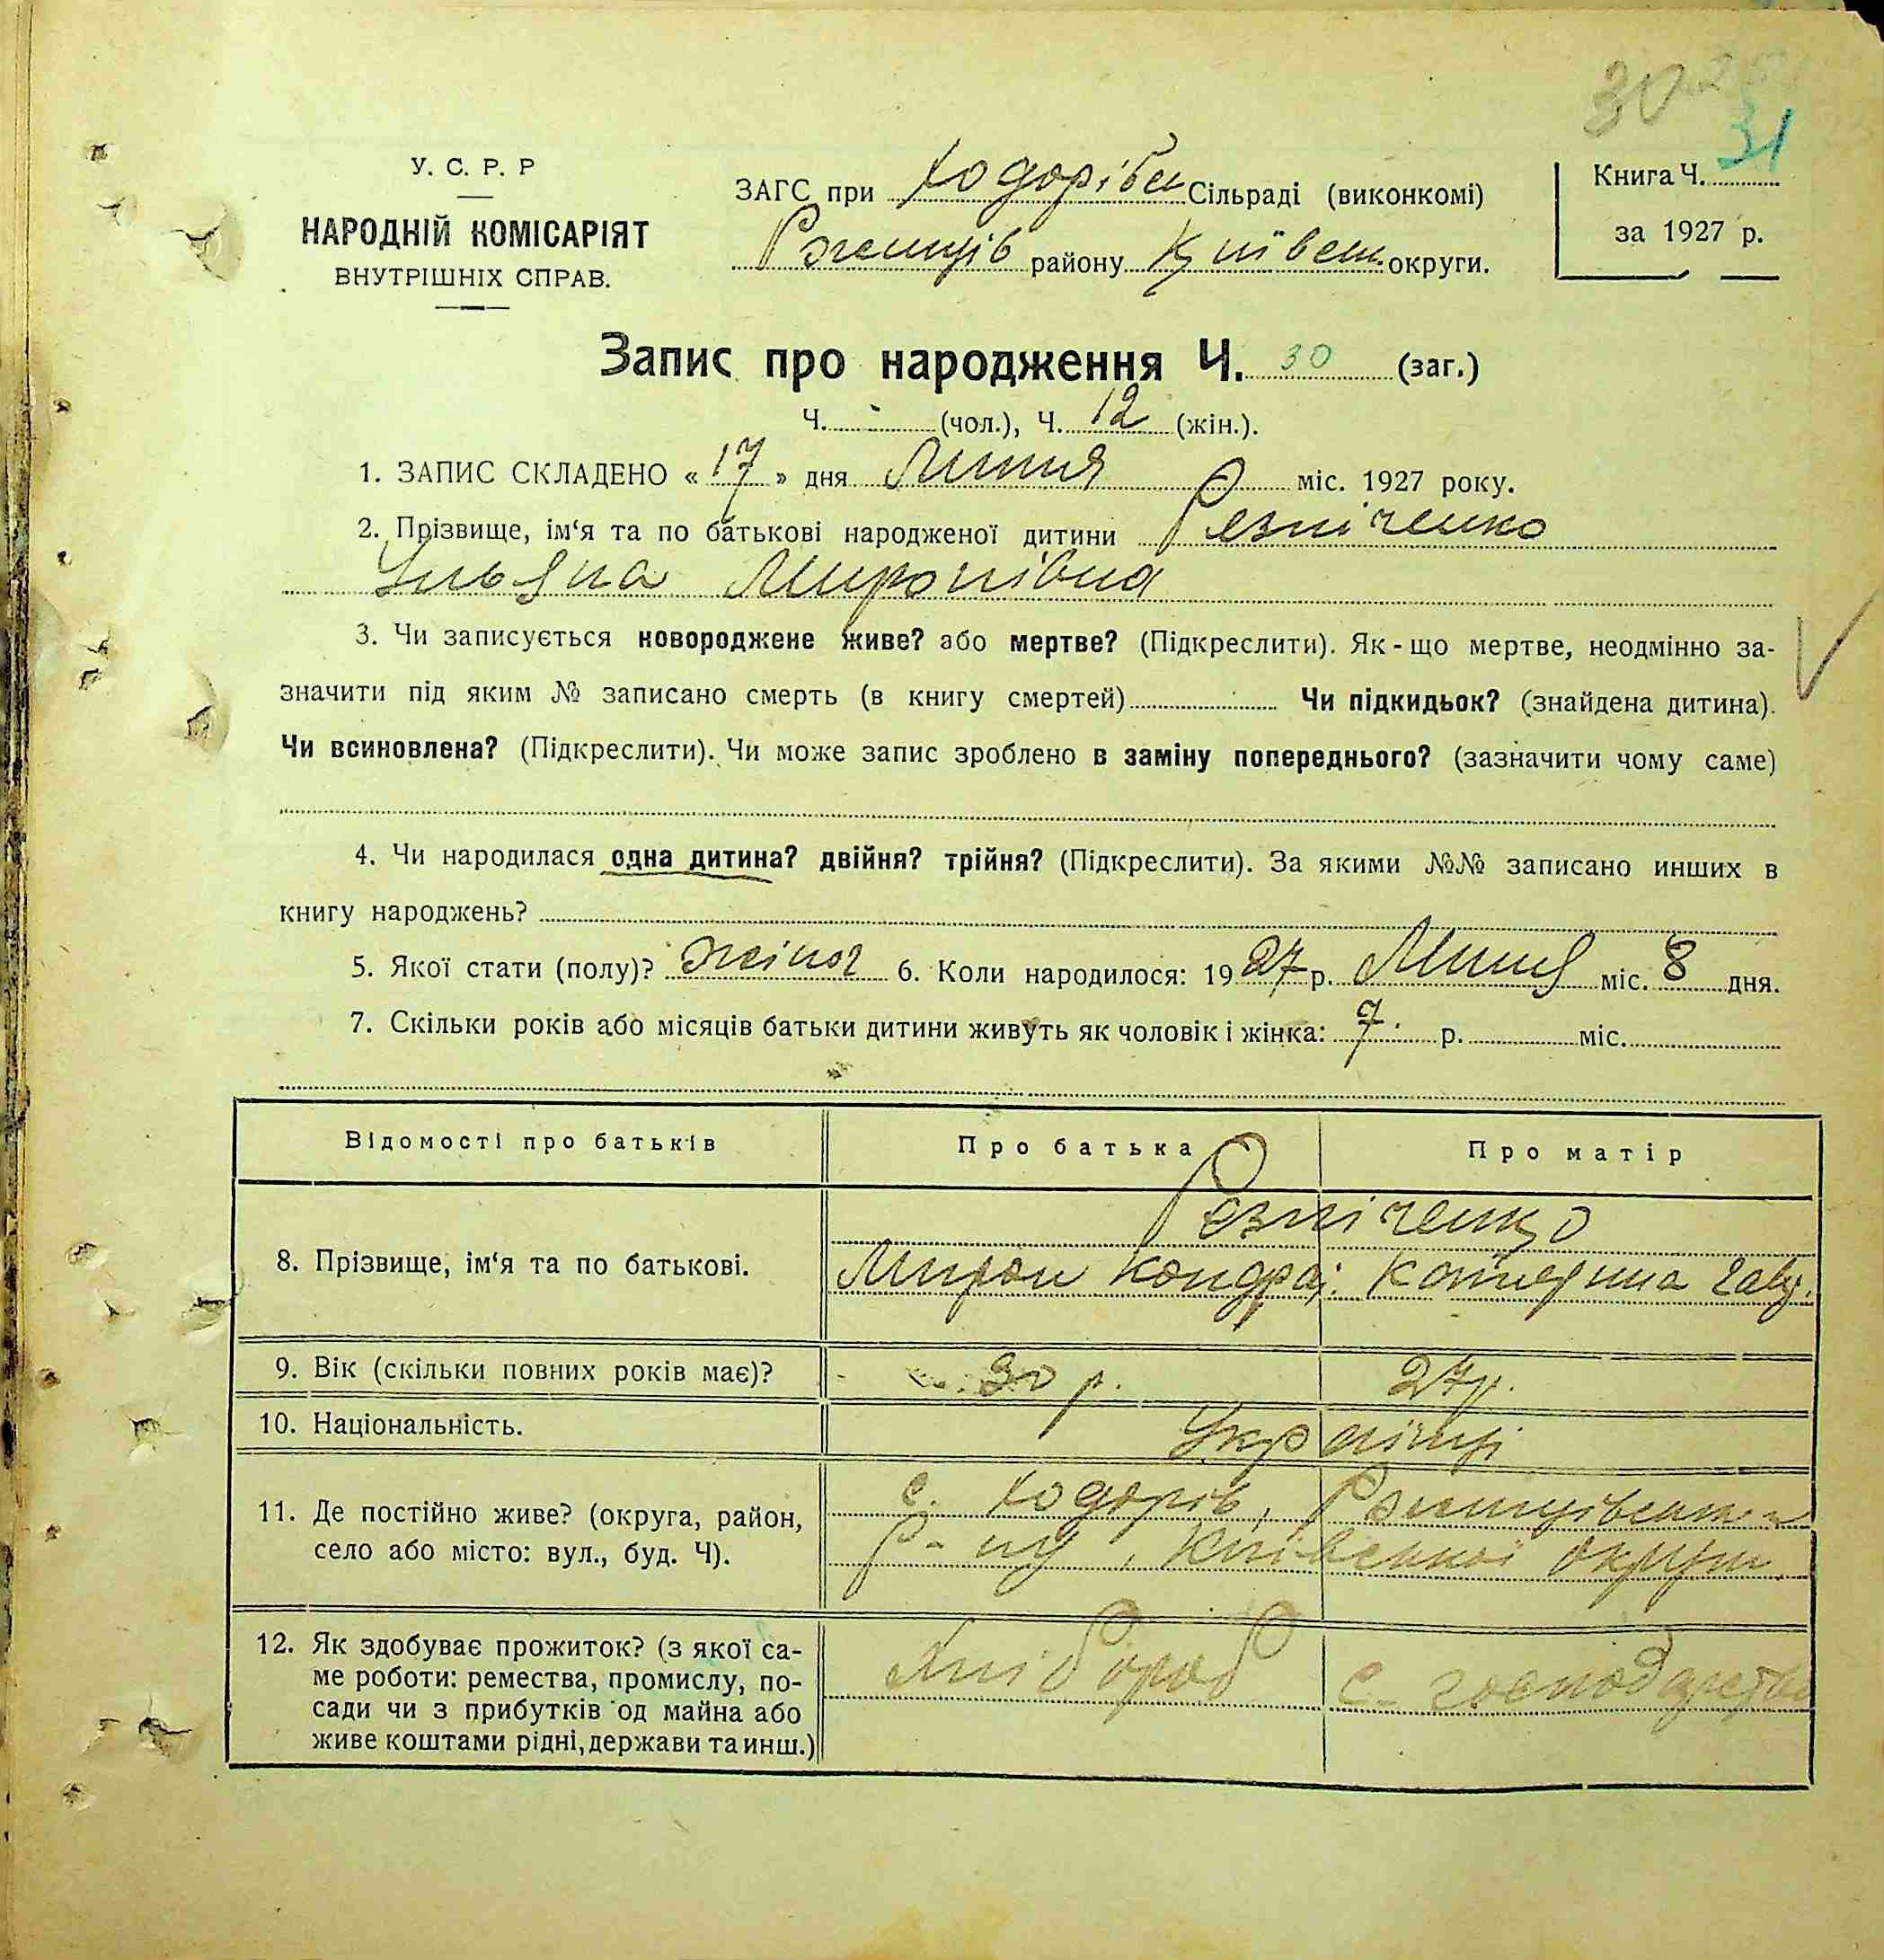 30
31
У. С. Р. Р
НАРОДНІЙ КОМІСАРІЯТ
ВНУТРІШНІХ СПРАВ.
ЗАГС при Ходорівськ Сільраді (виконкомі)
Ржищів району Київськ. округи.
Книга Ч.
за 1927 р.
Запис про народження Ч. 30 (заг.)
Ч. - (чол.), Ч. 12 (жін.).
1. ЗАПИС СКЛАДЕНО « 17 » дня Липня міс. 1927 року.
2. Прізвище, ім‘я та по батькові народженої дитини Резніченко
Ульяна Миронівна
3. Чи записується новороджене живе? або мертве? (Підкреслити). Як - що мертве, неодмінно за-
значити під яким № записано смерть (в книгу смертей) Чи підкидьок? (знайдена дитина).
Чи всиновлена? (Підкреслити). Чи може запис зроблено в заміну попереднього? (зазначити чому саме)
4. Чи народилася одна дитина? двійня? трійня? (Підкреслити). За якими №№ записано инших в
книгу народжень?
5. Якої стати (полу)? жіноч 6. Коли народилося: 1927 р. Липня міс. 8 дня.
7. Скільки років або місяців батьки дитини живуть як чоловік і жінка: 7 р. міс.
Відомості про батьків Про батька Про матір
8. Прізвище, ім‘я та по батькові.
Резніченко
Мирон Кондра. Катерина Гавр.
9. Вік (скільки повних років має)? 30 р. 27 р.
10. Національність. Українці
11. Де постійно живе? (округа, район,
село або місто: вул., буд. Ч).
с. Ходорів, Ржищівськ
р-ну, Київської округи
12. Як здобуває прожиток? (з якої са-
ме роботи: ремества, промислу, по-
сади чи з прибутків од майна або
живе коштами рідні, держави та инш.)
Хлібороб с-господарство